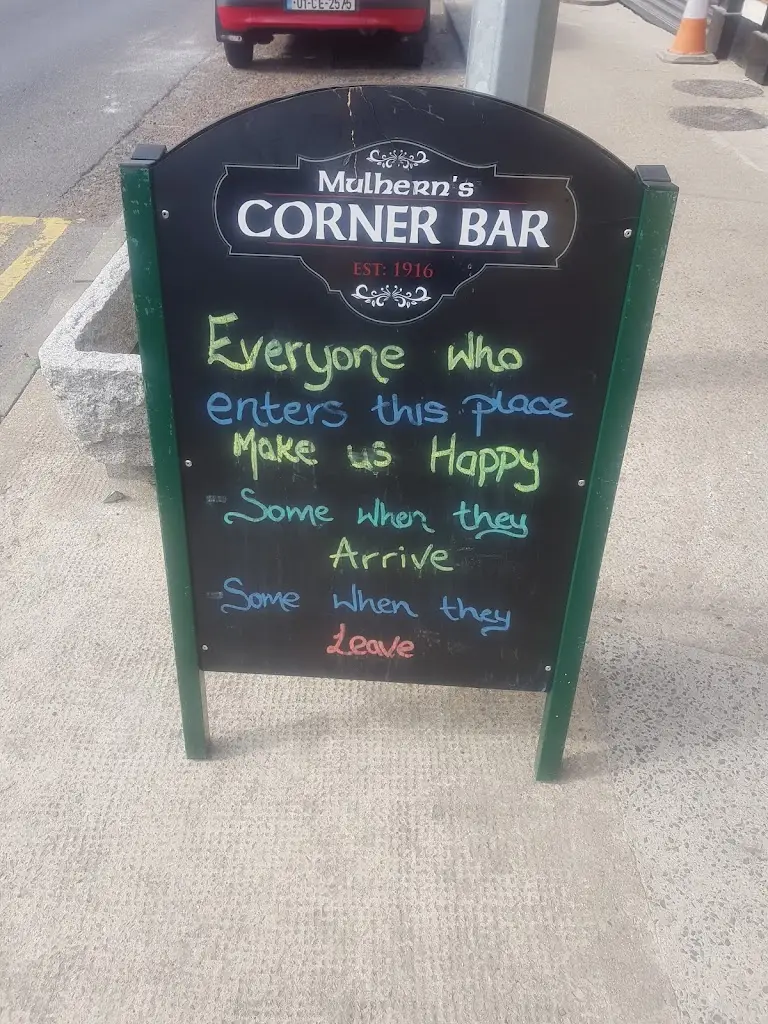 01-CE-2575
Mulhern's
CORNER BAR
EST: 1916
Everyone who
enters this place
Make us Happy
Some when they
Arrive
Some when they
Leave